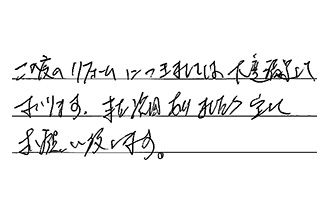 この度のリフォームにつきましては、大変満足して
おります。また次回ありましたら宜しく
お願い致します。